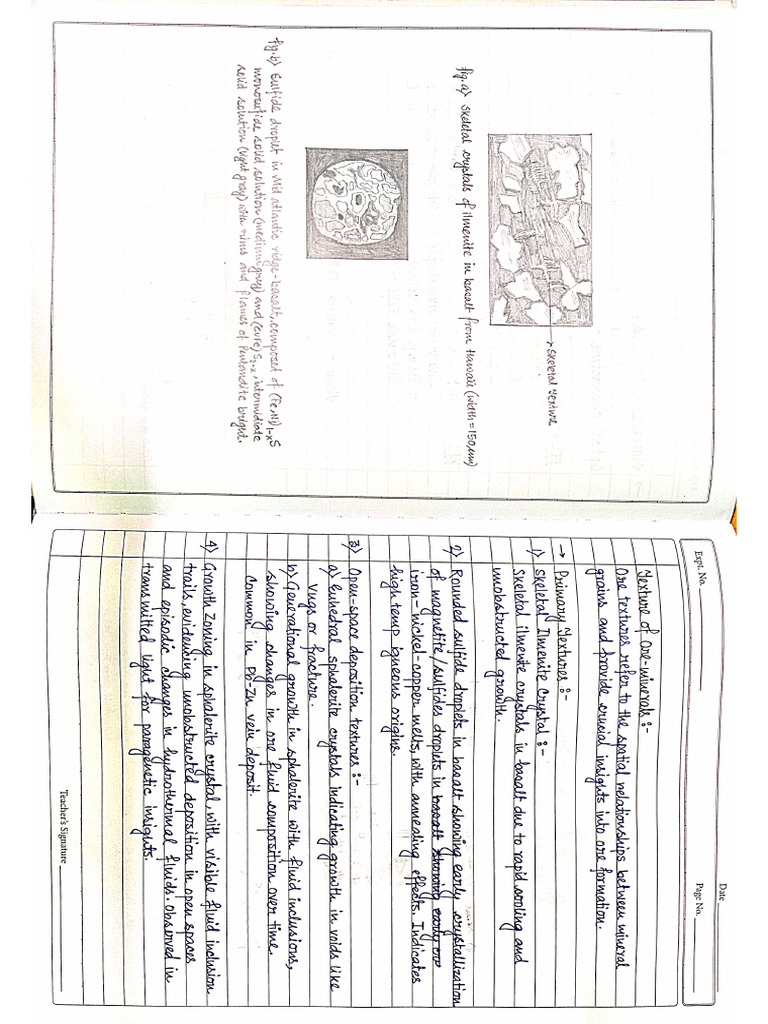 skeletal texture
fig. a) skeletal crystals of ilmenite in basalt from Hawaii (width = 150 µm)
fig. b) Sulfide droplet in Mid atlantic ridge-basalt, composed of (Fe,Ni)1-xS
monosulfide solid solution (medium grey) and (CuFe)S2-x, intermidiate
solid solution (light gray) with rims and flames of Pentlandite bright.
Date
Expt. No.
Page No.
Texture of Ore-minerals :-
Ore textures refer to the spatial relationships between mineral
grains and provide crucial insights into ore formation.
→ Primary Textures :-
1) Skeletal Ilmenite Crystal :-
Skeletal ilmenite crystals in basalt due to rapid cooling and
unobstructed growth.
2) Rounded sulfide droplets in basalt showing early crystallization
of magnetite/sulfides droplets in basalt showing early or
iron-nickel-copper melts, with annealing effects. Indicates
high temp igneous origins.
3) Open-space deposition textures :-
a) Euhedral sphalerite crystals indicating growth in voids like
vugs or fracture.
b) Generational growth in sphalerite with fluid inclusions,
showing changes in ore fluid composition over time.
Common in Pb-Zn vein deposit.
4) Growth Zoning in sphalerite crystal, with visible fluid inclusion
trails, evidencing unobstructed deposition in open spaces
and episodic changes in hydrothermal fluids. Observed in
transmitted light for paragenetic insights.
Teacher's Signature